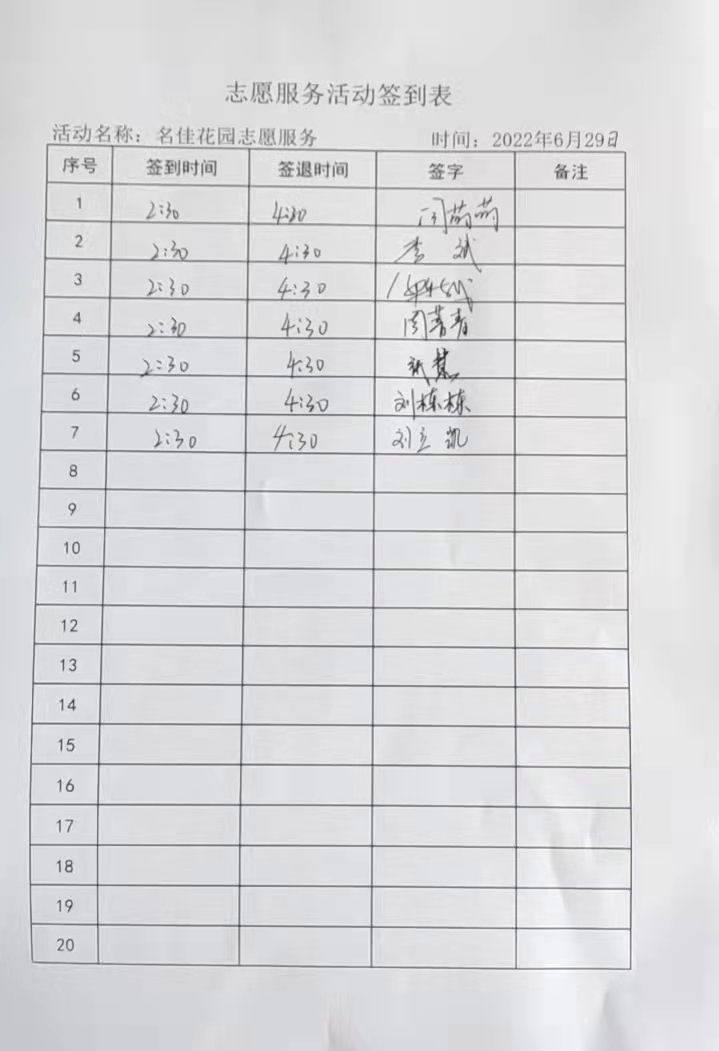 志愿服务活动签到表
活动名称：名佳花园志愿服务 时间：2022年6月29日
序号 签到时间 签退时间 签字 备注
1 2:30 4:30
2 2:30 4:30 李斌
3 2:30 4:30
4 2:30 4:30 周菁菁
5 2:30 4:30
6 2:30 4:30 刘栋栋
7 2:30 4:30 刘立凯
8
9
10
11
12
13
14
15
16
17
18
19
20